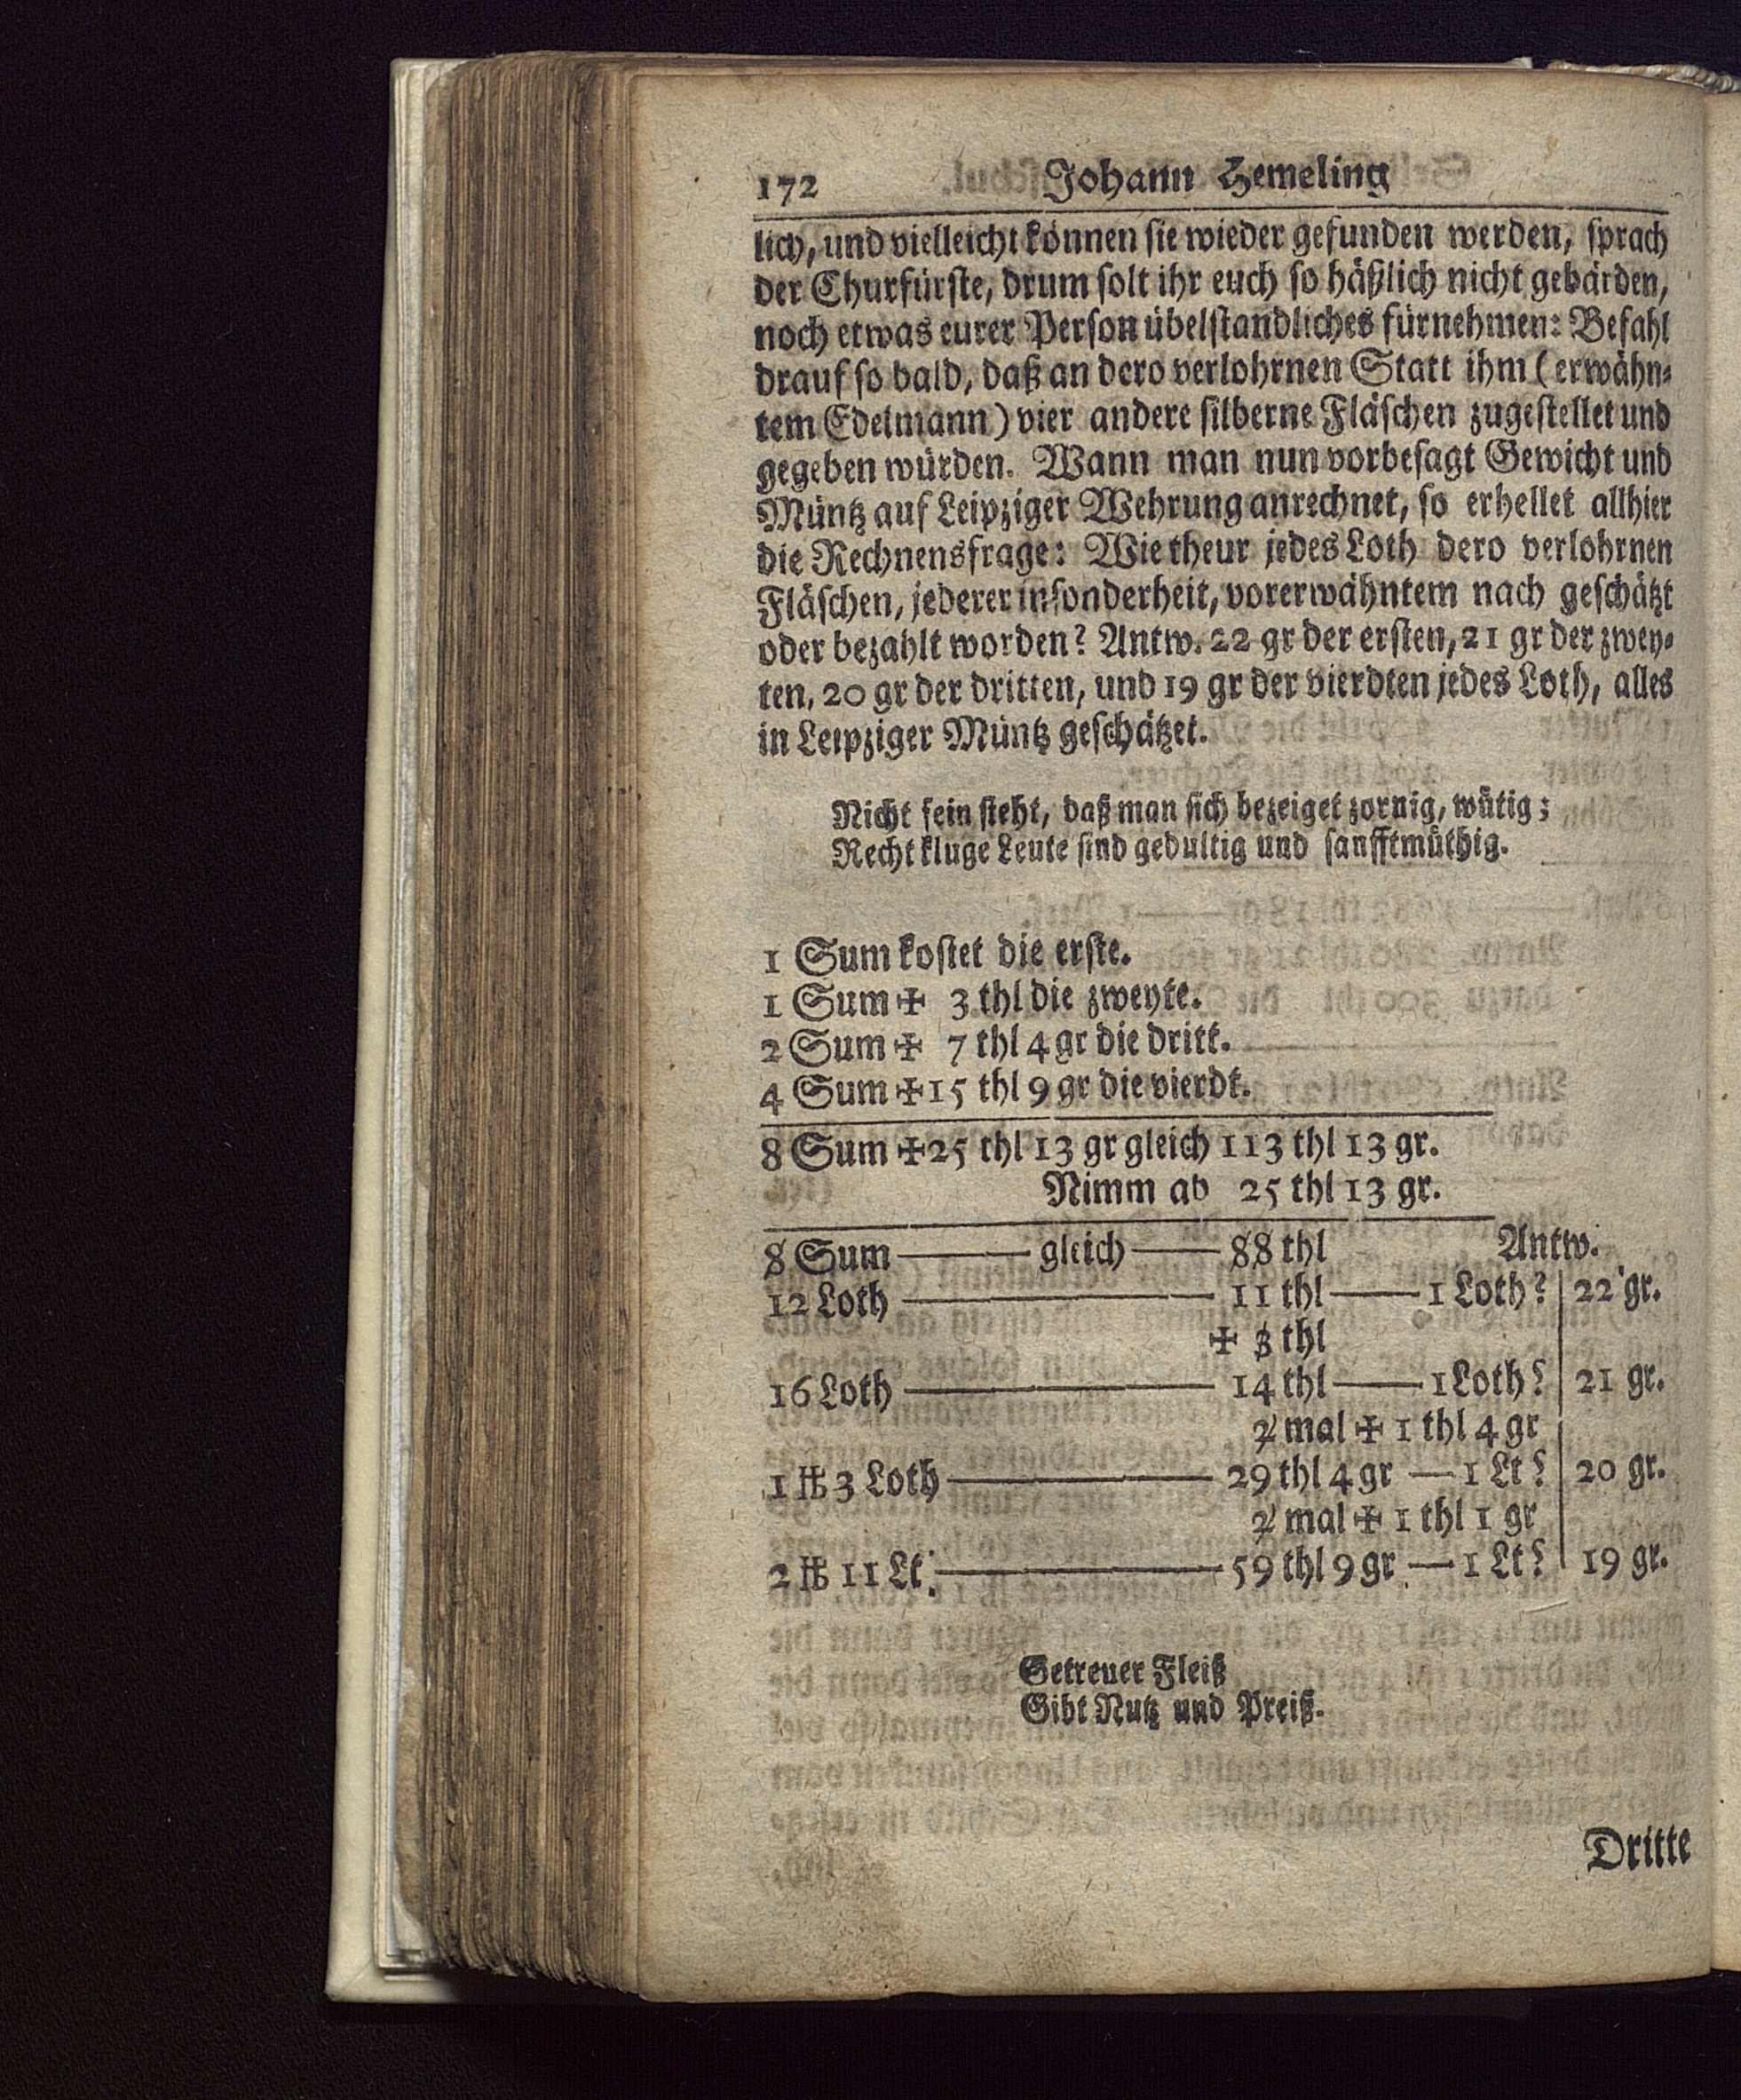 172 Johann Hemeling
lich, und vielleicht können sie wieder gefunden werden, sprach
der Churfürste, drum solt ihr euch so häßlich nicht gebärden,
noch etwas eurer Person übelstandliches fürnehmen: Befahl
drauf so bald, daß an dero verlohrnen Statt ihm (erwähn-
tem Edelmann) vier andere silberne Fläschen zugestellet und
gegeben würden. Wann man nun vorbesagt Gewicht und
Müntz auf Leipziger Wehrung anrechnet, so erhellet allhier
die Rechnensfrage: Wie theur jedes Loth dero verlohrnen
Fläschen, jederer insonderheit, vorerwähntem nach geschätzt
oder bezahlt worden? Antw. 22 gr der ersten, 21 gr der zwey-
ten, 20 gr der dritten, und 19 gr der vierdten jedes Loth, alles
in Leipziger Müntz geschätzet.
Nicht fein steht, daß man sich bezeiget zornig, wütig;
Recht kluge Leute sind gedultig und sanfftmüthig.
1 Sum kostet die erste.
1 Sum ✠ 3 thl die zweyte.
2 Sum ✠ 7 thl 4 gr die dritt.
4 Sum ✠ 15 thl 9 gr die vierdt.
8 Sum ✠ 25 thl 13 gr gleich 113 thl 13 gr.
Nimm ab 25 thl 13 gr.
8 Sum — gleich — 88 thl Antw.
12 Loth — 11 thl — 1 Loth? | 22 gr.
✠ 3 thl
16 Loth — 14 thl — 1 Loth? | 21 gr.
2 mal ✠ 1 thl 4 gr
1 ℔ 3 Loth — 29 thl 4 gr — 1 Lt? | 20 gr.
2 mal ✠ 1 thl 1 gr
2 ℔ 11 Lt. — 59 thl 9 gr — 1 Lt? | 19 gr.
Getreuer Fleiß
Gibt Nutz und Preiß.
Dritte